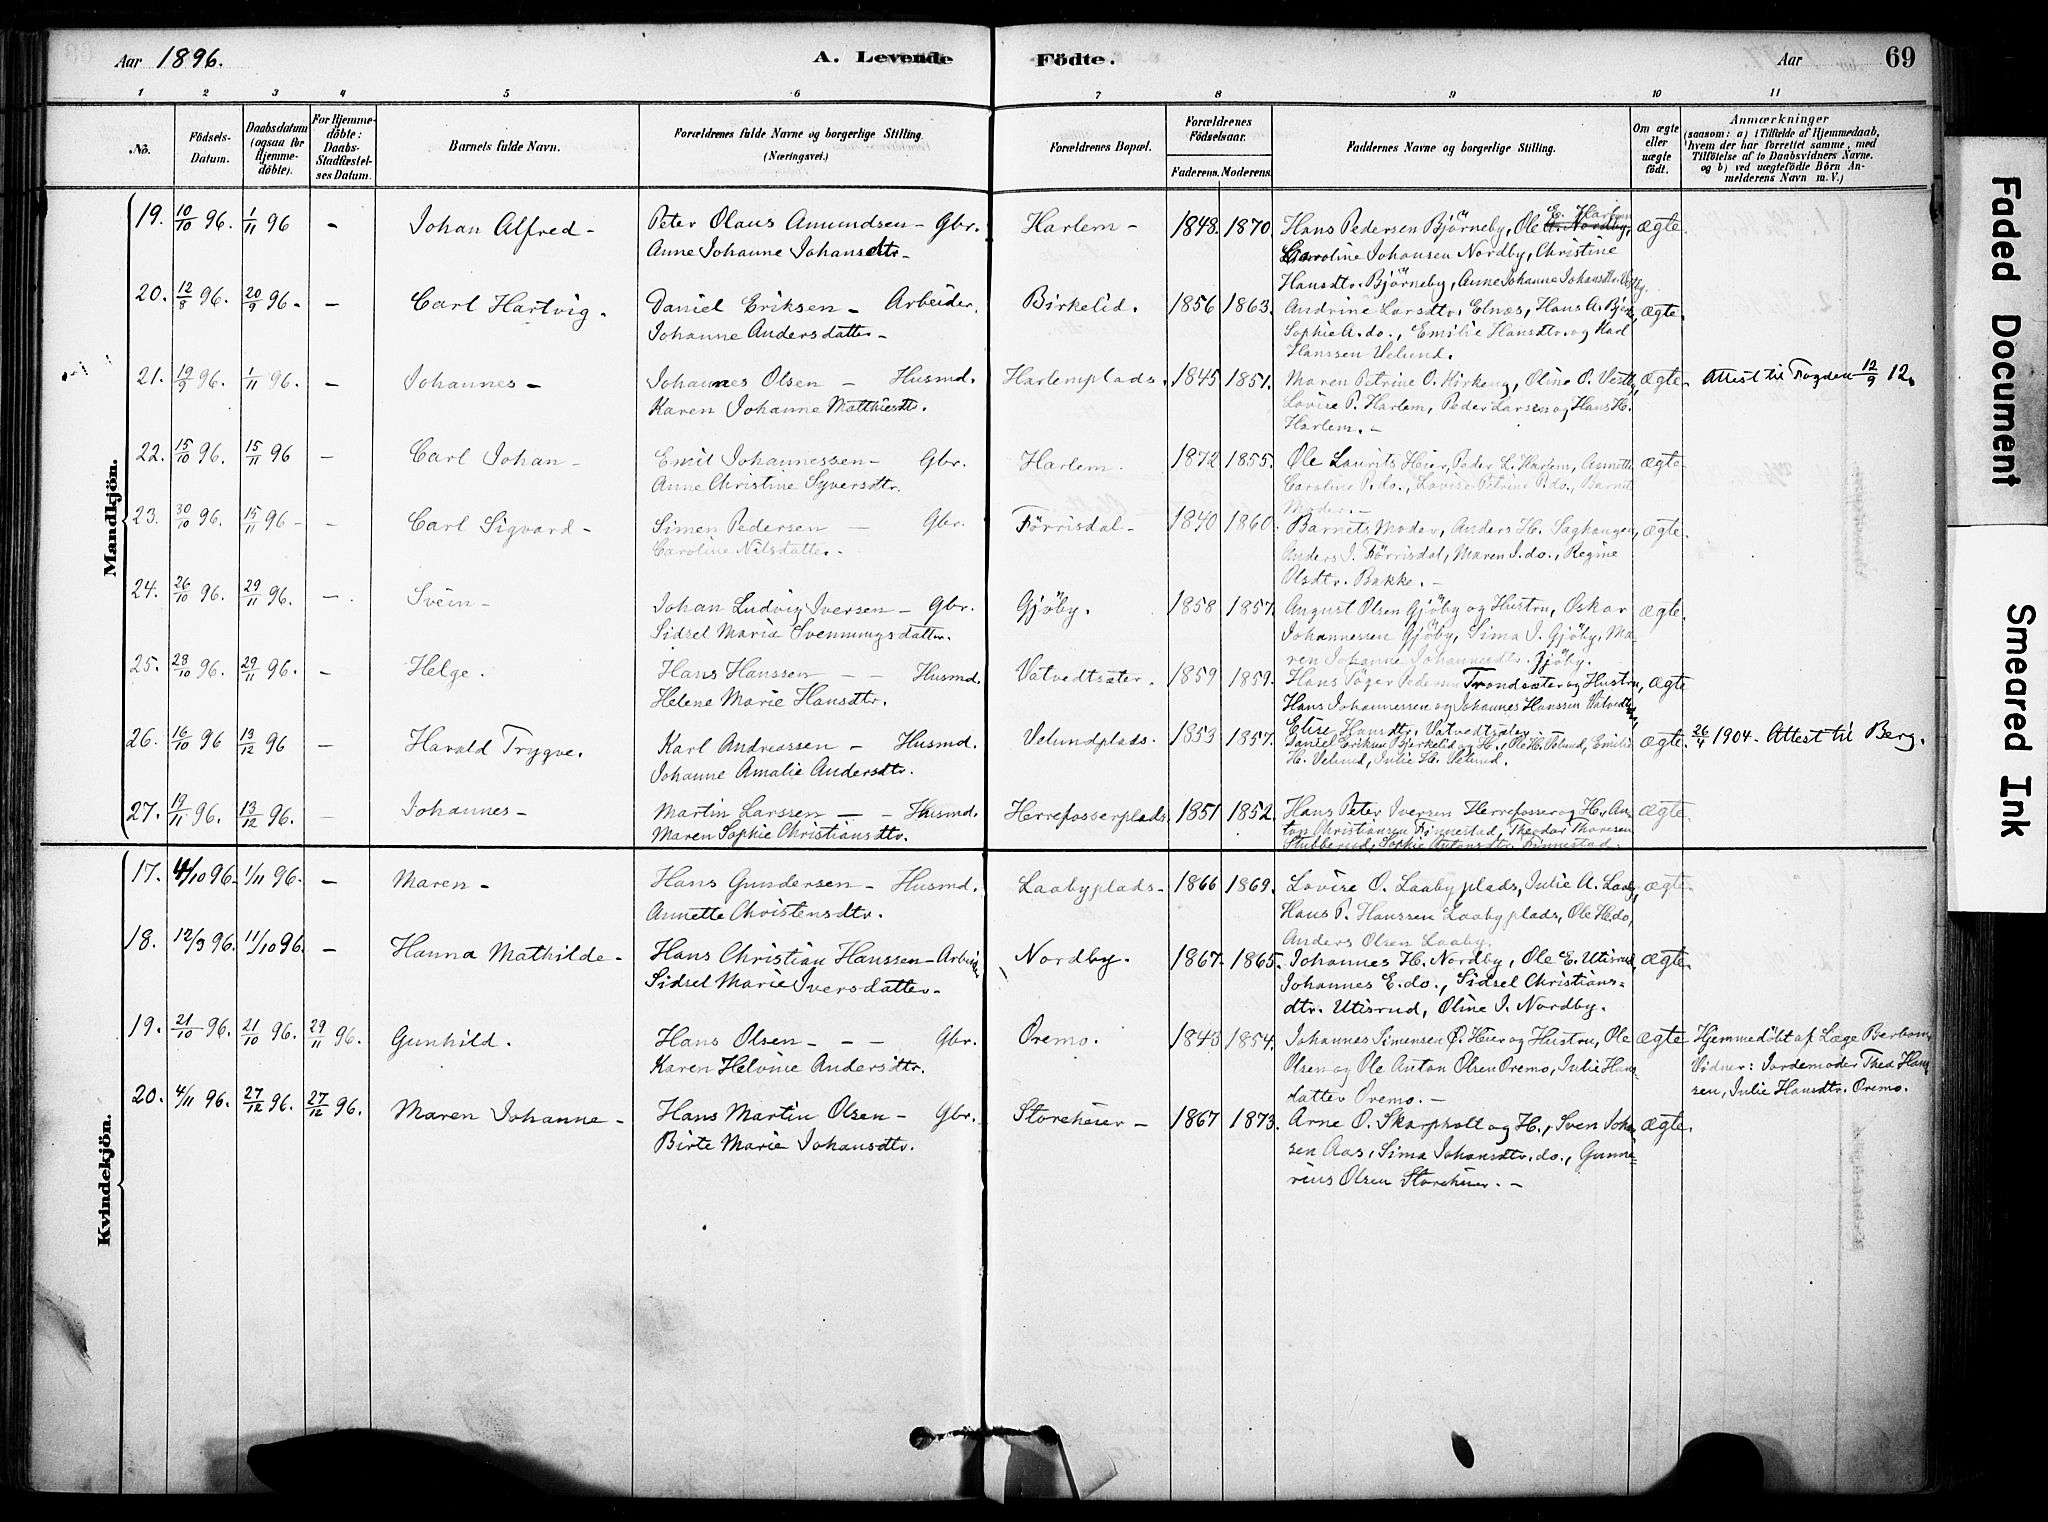 Aar 1896.
A. Levende Födte.
Aar
69
1 2 3 4 5 6 7 8 9 10 11
No.
Födsels-Datum.
Daabsdatum (ogsaa for Hjemmedöbte).
For Hjemmedöbte: Daabs-Stadfæstelses Datum.
Barnets fulde Navn.
Forældrenes fulde Navne og borgerlige Stilling.
(Næringsvei.)
Forældrenes Bopæl.
Forældrenes Födselsaar.
Faderens. Moderens.
Faddernes Navne og borgerlige Stilling.
Om ægte eller uægte födt.
Anmærkninger
(saasom: a) i Tilfælde af Hjemmedaab,
hvem der har forrettet samme, med
Tilföielse af to Daabsvidners Navne.
og b) ved uægtefödte Börn An-
melderens Navn m. V.)
Mandkjön.
19. 10/10 96. 1/11 96 - Johan Alfred - Peter Olaus Amundsen - Gbr. Harlem - 1848. 1870. Hans Pedersen Björneby, Ole E. Harlem ægte.
Anne Johanne Johansdtr. Caroline Johansen Nordby, Christine
Hansdtr. Björneby, Anne Johanne Johansdtr.
20. 12/8 96. 20/9 96 - - Carl Hartvig. Daniel Eriksen - Arbeider. Birkelid. 1856 1863. Andrine Larsdtr. Elnæs, Hans A. ægte.
Johanne Andersdatter - Sophie A. do., Emilie Hansdtr. og Karl
Hanssen Velund.
21. 19/9 96. 1/11 96. - Johannes - Johannes Olsen - Husmd. Harlemplads. 1845 1851. Maren Petrine O. Kirkeng, Oline O. ægte. Attest til Fogden 12/9 12.
Karen Johanne Matthisdtr. Lovise P. Harlem, Peder Larsen og Hans H.
Harlem. -
22. 15/10 96. 15/11 96 - Carl Johan - Emil Johannessen - Gbr. Harlem. 1872 1855. Ole Laurits Heier, Peder L. Harlem, Annette ægte.
Anne Christine Syversdtr. Caroline P. do., Lovise Petrine P. do., Barnets
Moder. -
23. 30/10 96. 15/11 96 - - Carl Sigvard - Simen Pedersen - Gbr. Förrisdal - 1840 1860. Barnets Moder, Anders H. Saghaugen, ægte.
Caroline Nilsdatter - Anders I. Förrisdal, Maren I. do., Regine
Olsdtr. Bakke. -
24. 26/10 96. 29/11 96. - Svein - Johan Ludvig Iversen - Gbr. Gjöby. 1858 1857. August Olsen Gjöby og Hustru, Oskar ægte.
Sidsel Marie Svenningsdatter. Johannessen Gjöby, Sima J. Gjöby, Ma-
ren Johanne Johannesdtr. Gjöby.
25. 28/10 96. 29/11 96. - Helge. Hans Hanssen - - Husmd. Vatvedtsæter. 1859 1859. Hans Pedersen Trondsæter og Hustru, ægte
Helene Marie Hansdtr. Hans Johannessen og Johannes Hanssen
Elise Hansdtr. Vatvedtsæter.
26. 16/10 96 13/12 96 - Harald Trygve. Karl Andreassen - Husmd. Velundplads. 1853 1857. Daniel Eriksen Bjerkelid og H., Ole H. Velund, Emilie ægte. 26/4 1904. Attest til Berg.
Johanne Amalie Andersdtr. H. Velund, Julie H. Velund.
27. 19/11 96. 13/12 96. - Johannes - Martin Larssen - - Husmd. Herrefosserplads. 1851 1852. Hans Peter Iversen Herrefosser og H., An- ægte.
Maren Sophie Christiansdtr. ton Christiansen Finnestad, Theodor Thoresen
Stubberud, Sophie Antonsdtr. Finnestad.
Kvindekjön.
17. 4/10 96. 1/11 96. - Maren - Hans Gundersen - Husmd. Laabyplads - 1866 1869. Lovise O. Laabyplads, Julie A. Laaby, ægte.
Annette Christensdtr. Hans P. Hanssen Laabyplads, Ole H. do,
Anders Olsen Laaby.
18. 12/9 96. 11/10 96. - Hanna Mathilde - Hans Christian Hanssen - Arbeider Nordby. 1867. 1865. Johannes H. Nordby, Ole E. Utisrud, ægte.
Sidsel Marie Iversdatter - Johannes E. do., Sidsel Christians-
dtr. Utisrud, Oline I. Nordby.
19. 21/10 96. 21/10 96. 29/11 96. Gunhild. Hans Olsen - - - Gbr. Oremo. 1843 1854. Johannes Simensen Ö. Heier og Hustru, Ole ægte Hjemmedöbt af Læge
Karen Helvine Andersdtr. Olsen og Ole Anton Olsen Oremo, Julie Hans- Vidner: Jordemoder Thea Han-
datter Oremo. - sen, Julie Hansdtr. Oremo.
20. 4/11 96. 27/12 96. 27/12 96. Maren Johanne - Hans Martin Olsen - Gbr. Storeheier - 1867 1873. Arne O. Skarpholt og H., Sven Johan- ægte.
Birte Marie Johansdtr. sen Aas, Sima Johansdtr. do., Gunne-
rius Olsen Storeheier. -
Faded Document
Smeared Ink